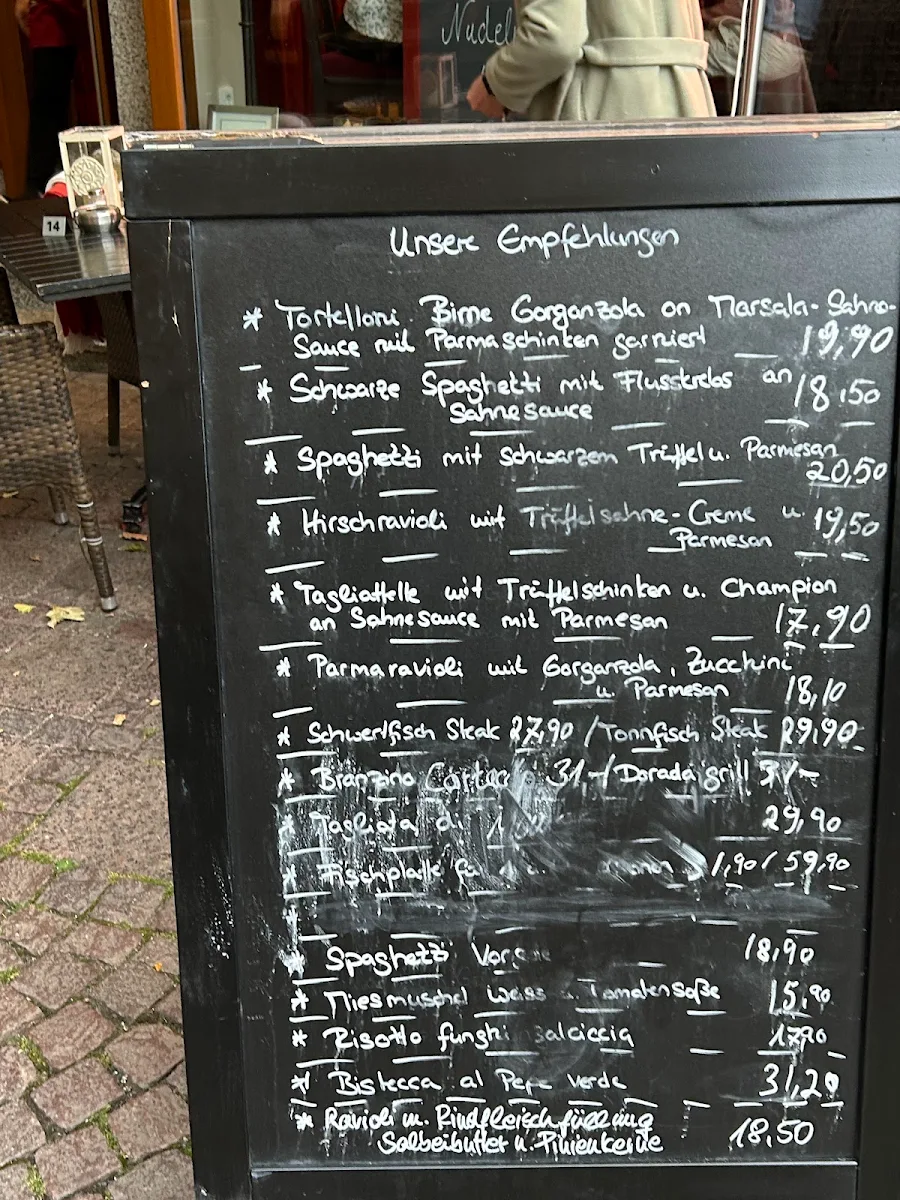 Nudel
14
Unsere Empfehlungen
* Tortelloni Birne Gorganzola an Marsala-Sahne-
Sauce mit Parmaschinken garniert 19,90
* Schwarze Spaghetti mit Flusskrebs an 18,50
Sahnesauce
* Spaghetti mit Schwarzem Trüffel u. Parmesan
20,50
* Hirschravioli mit Trüffelsahne-Creme u. 19,50
Parmesan
* Tagliattelle mit Trüffelschinken u. Champion
an Sahnesauce mit Parmesan 17,90
* Parmaravioli mit Gorganzola, Zucchini
u. Parmesan 18,10
* Schwertfisch Steak 27,90 / Tonnfisch Steak 29,90
* Branzino 31,-/ Dorada grill 31,-
* Tagliata di 29,90
* Fischplatte für / 59,90
*
* Spaghetti 18,90
* Miesmuschel weiss u. Tomatensoße 15,90
* Risotto funghi salciccia 17,90
* Bistecca al Pepe verde 31,20
* Ravioli m. Rindfleischfüllung
Salbeibutter u. Pinienkerne 18,50